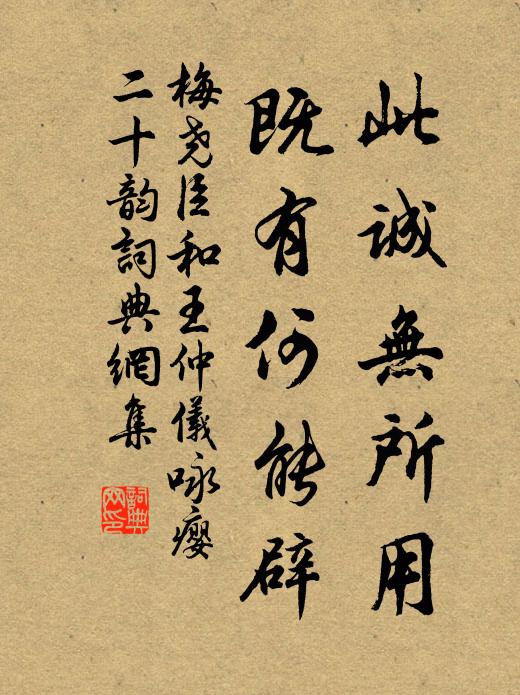 此誠無所用
既有何能辟
梅尧臣和王仲儀咏癭
二十韵詞典網集
詞典
网印